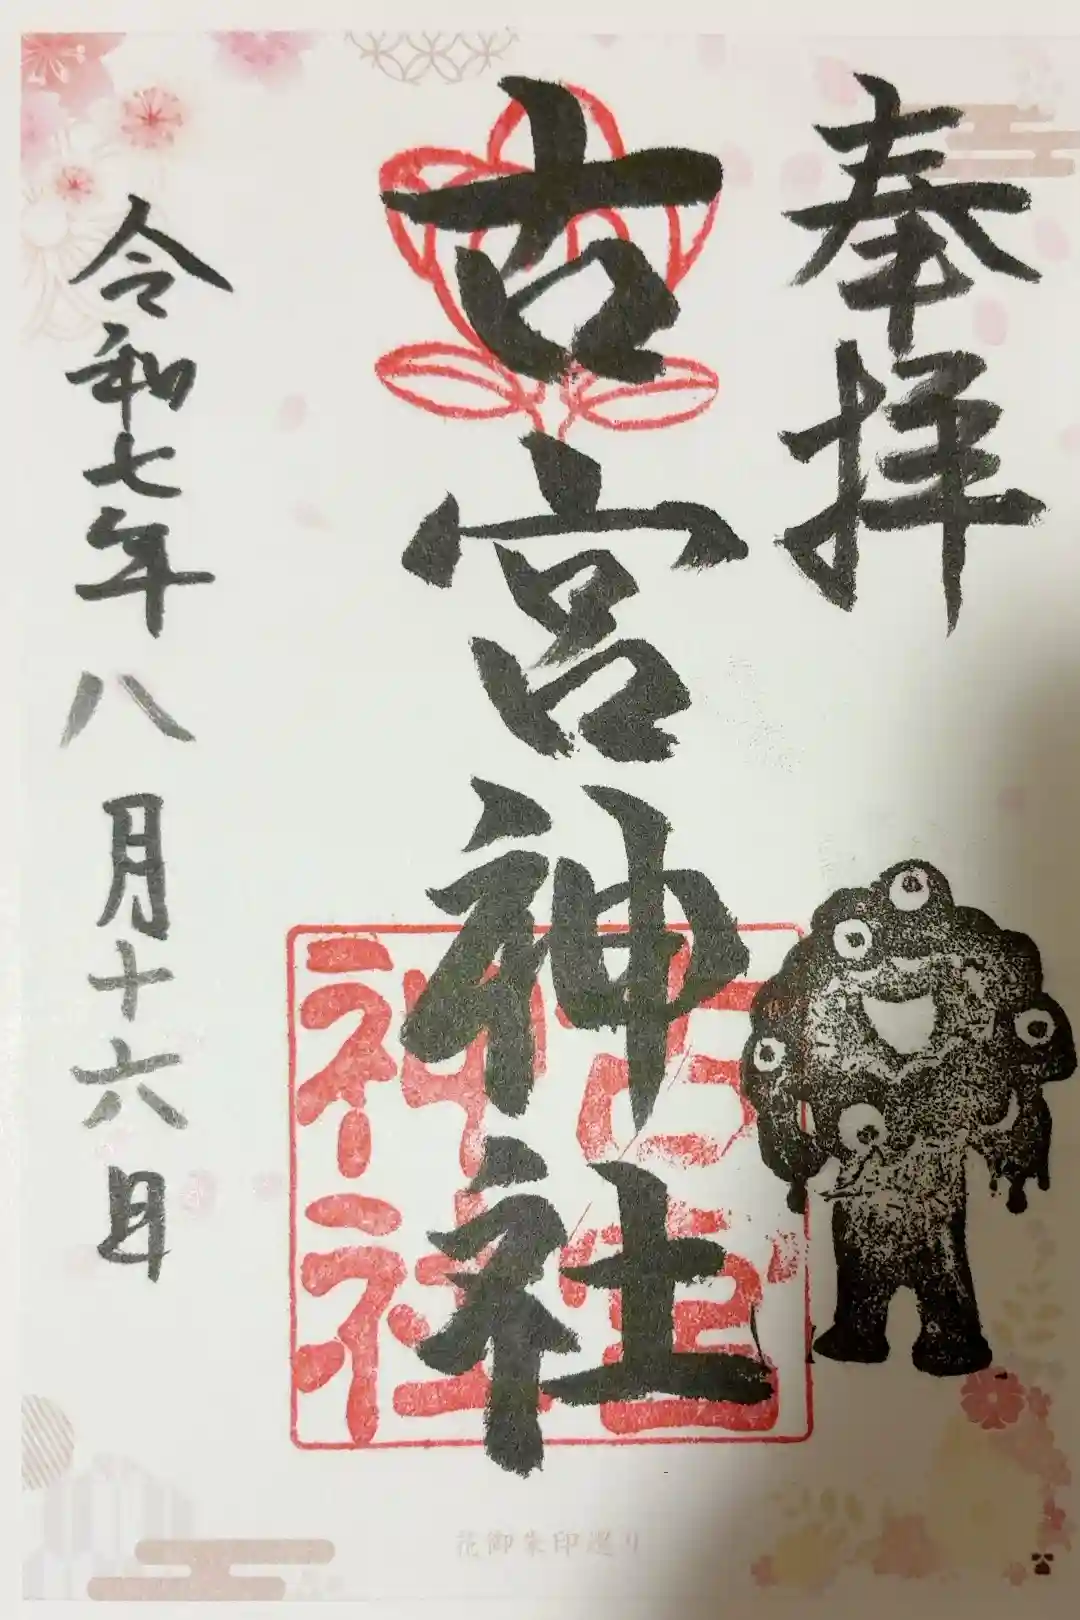 奉拝
古宮神社
古宮
神社
令和七年八月十六日
花御朱印巡り